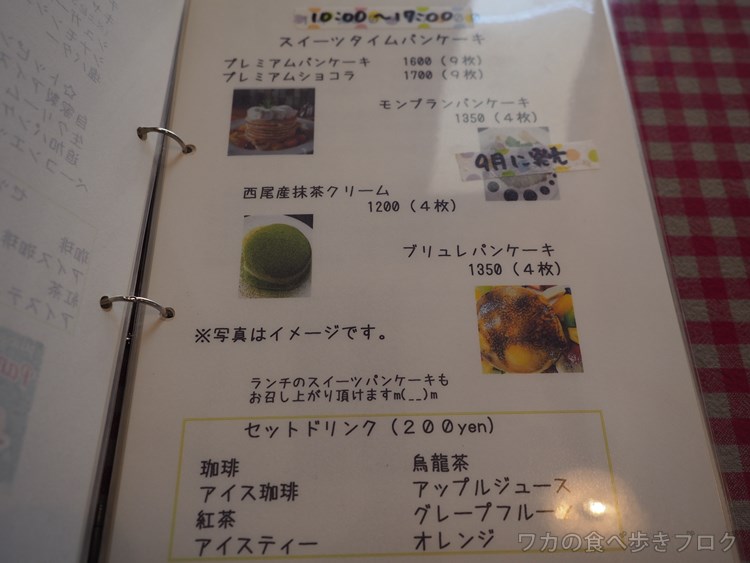 10:00〜17:00
スイーツタイムパンケーキ
プレミアムパンケーキ 1600(9枚)
プレミアムショコラ 1700(9枚)
モンブランパンケーキ
1350(4枚)
西尾産抹茶クリーム
1200(4枚)
ブリュレパンケーキ
1350(4枚)
※写真はイメージです。
ランチのスイーツパンケーキも
お召し上がり頂けますm(__)m
セットドリンク(200yen)
珈琲
アイス珈琲
紅茶
アイスティー
烏龍茶
アップルジュース
グレープフルーツ
オレンジ
ワカの食べ歩きブログ